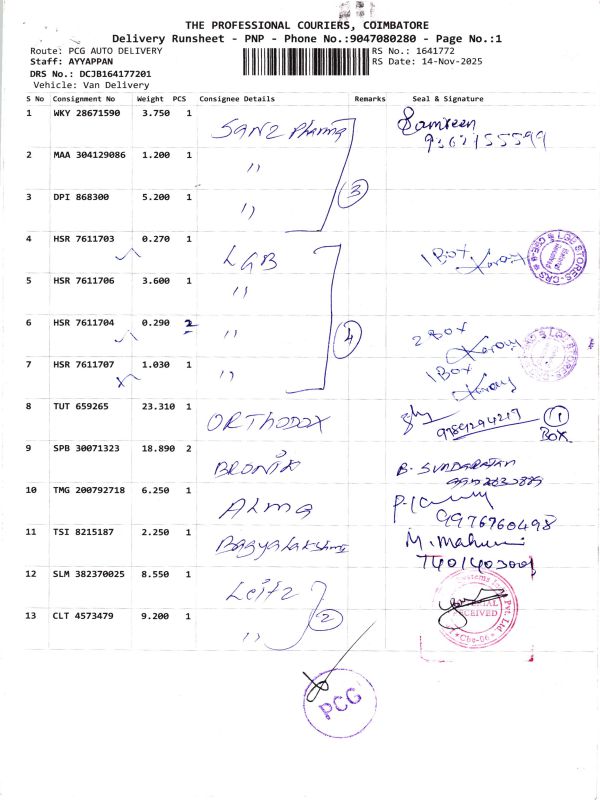 THE PROFESSIONAL COURIERS, COIMBATORE
Delivery Runsheet - PNP - Phone No.:9047080280 - Page No.:1
Route: PCG AUTO DELIVERY
RS No.: 1641772
Staff: AYYAPPAN
RS Date: 14-Nov-2025
DRS No.: DCJB164177201
Vehicle: Van Delivery
S No Consignment No Weight PCS Consignee Details Remarks Seal & Signature
1 WKY 28671590 3.750 1 SANZ Pharma Samreen
2 MAA 304129086 1.200 1 ''
3 DPI 868300 5.200 1 '' 3
4 HSR 7611703 0.270 1 LGB 1 Box
LGB STORES-CRS
5 HSR 7611706 3.600 1 ''
6 HSR 7611704 0.290 2 '' 4 2 Box
7 HSR 7611707 1.030 1 '' 1 Box
8 TUT 659265 23.310 1 ORTHODOX 9789294217 BOX
9 SPB 30071323 18.890 2 BRONIK B. SUNDARARAJAN
10 TMG 200792718 6.250 1 ALMA
9976760498
11 TSI 8215187 2.250 1 Bagyalakshmi M.
12 SLM 382370025 8.550 1 Leitz
Systems Pvt. Ltd
RECEIVED
13 CLT 4573479 9.200 1 '' 2
Cbe-06
PCG